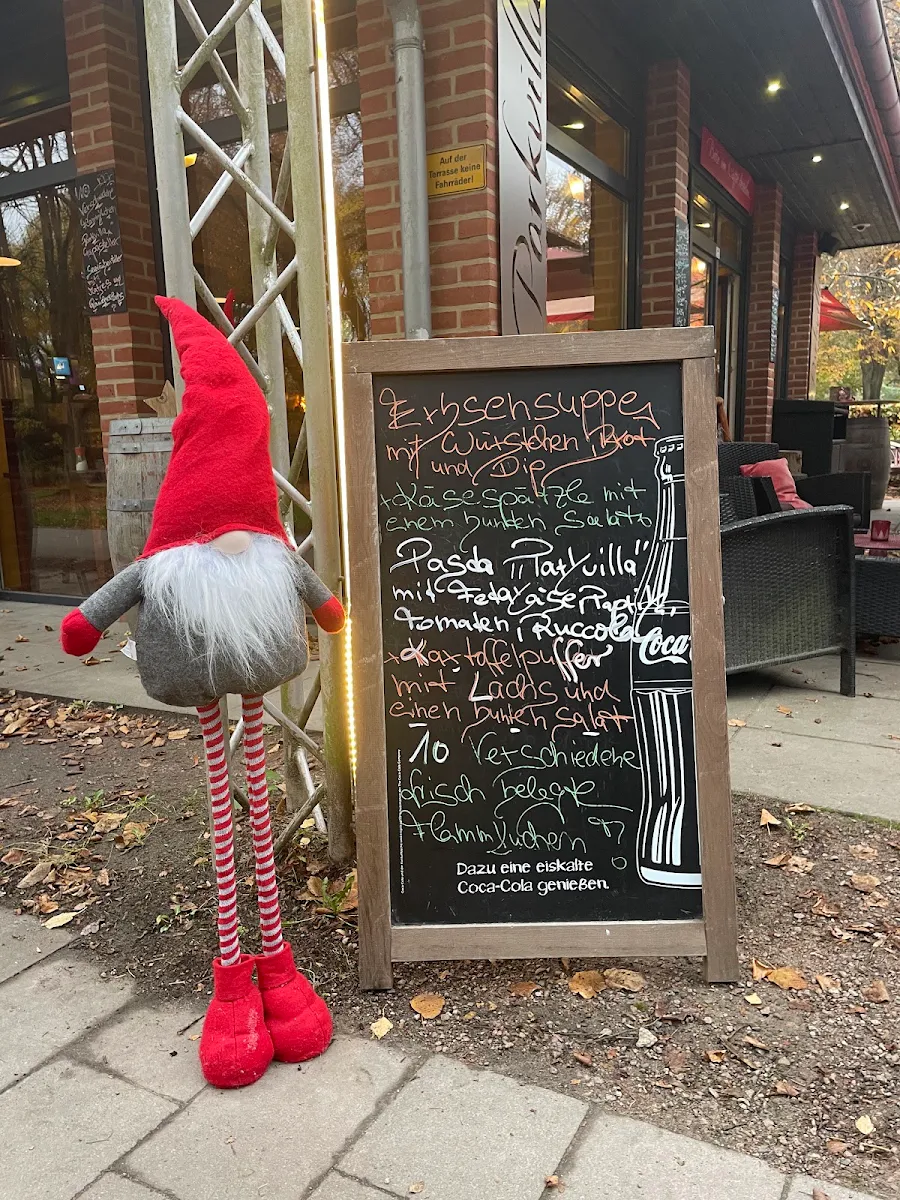 Parkvilla
Auf der
Terrasse keine
Fahrräder!
Erbsensuppe
mit Würstchen Brot
und Dip
Käsespätzle mit
einem bunten Salat
Pasda "Parkvilla"
mit Fetakäse
Tomaten, Ruccola
Kartoffelpuffer
mit Lachs und
einen bunten Salat
10 Verschiedene
frisch belegte
Flammkuchen
Coca
Dazu eine eiskalte
Coca-Cola genießen.